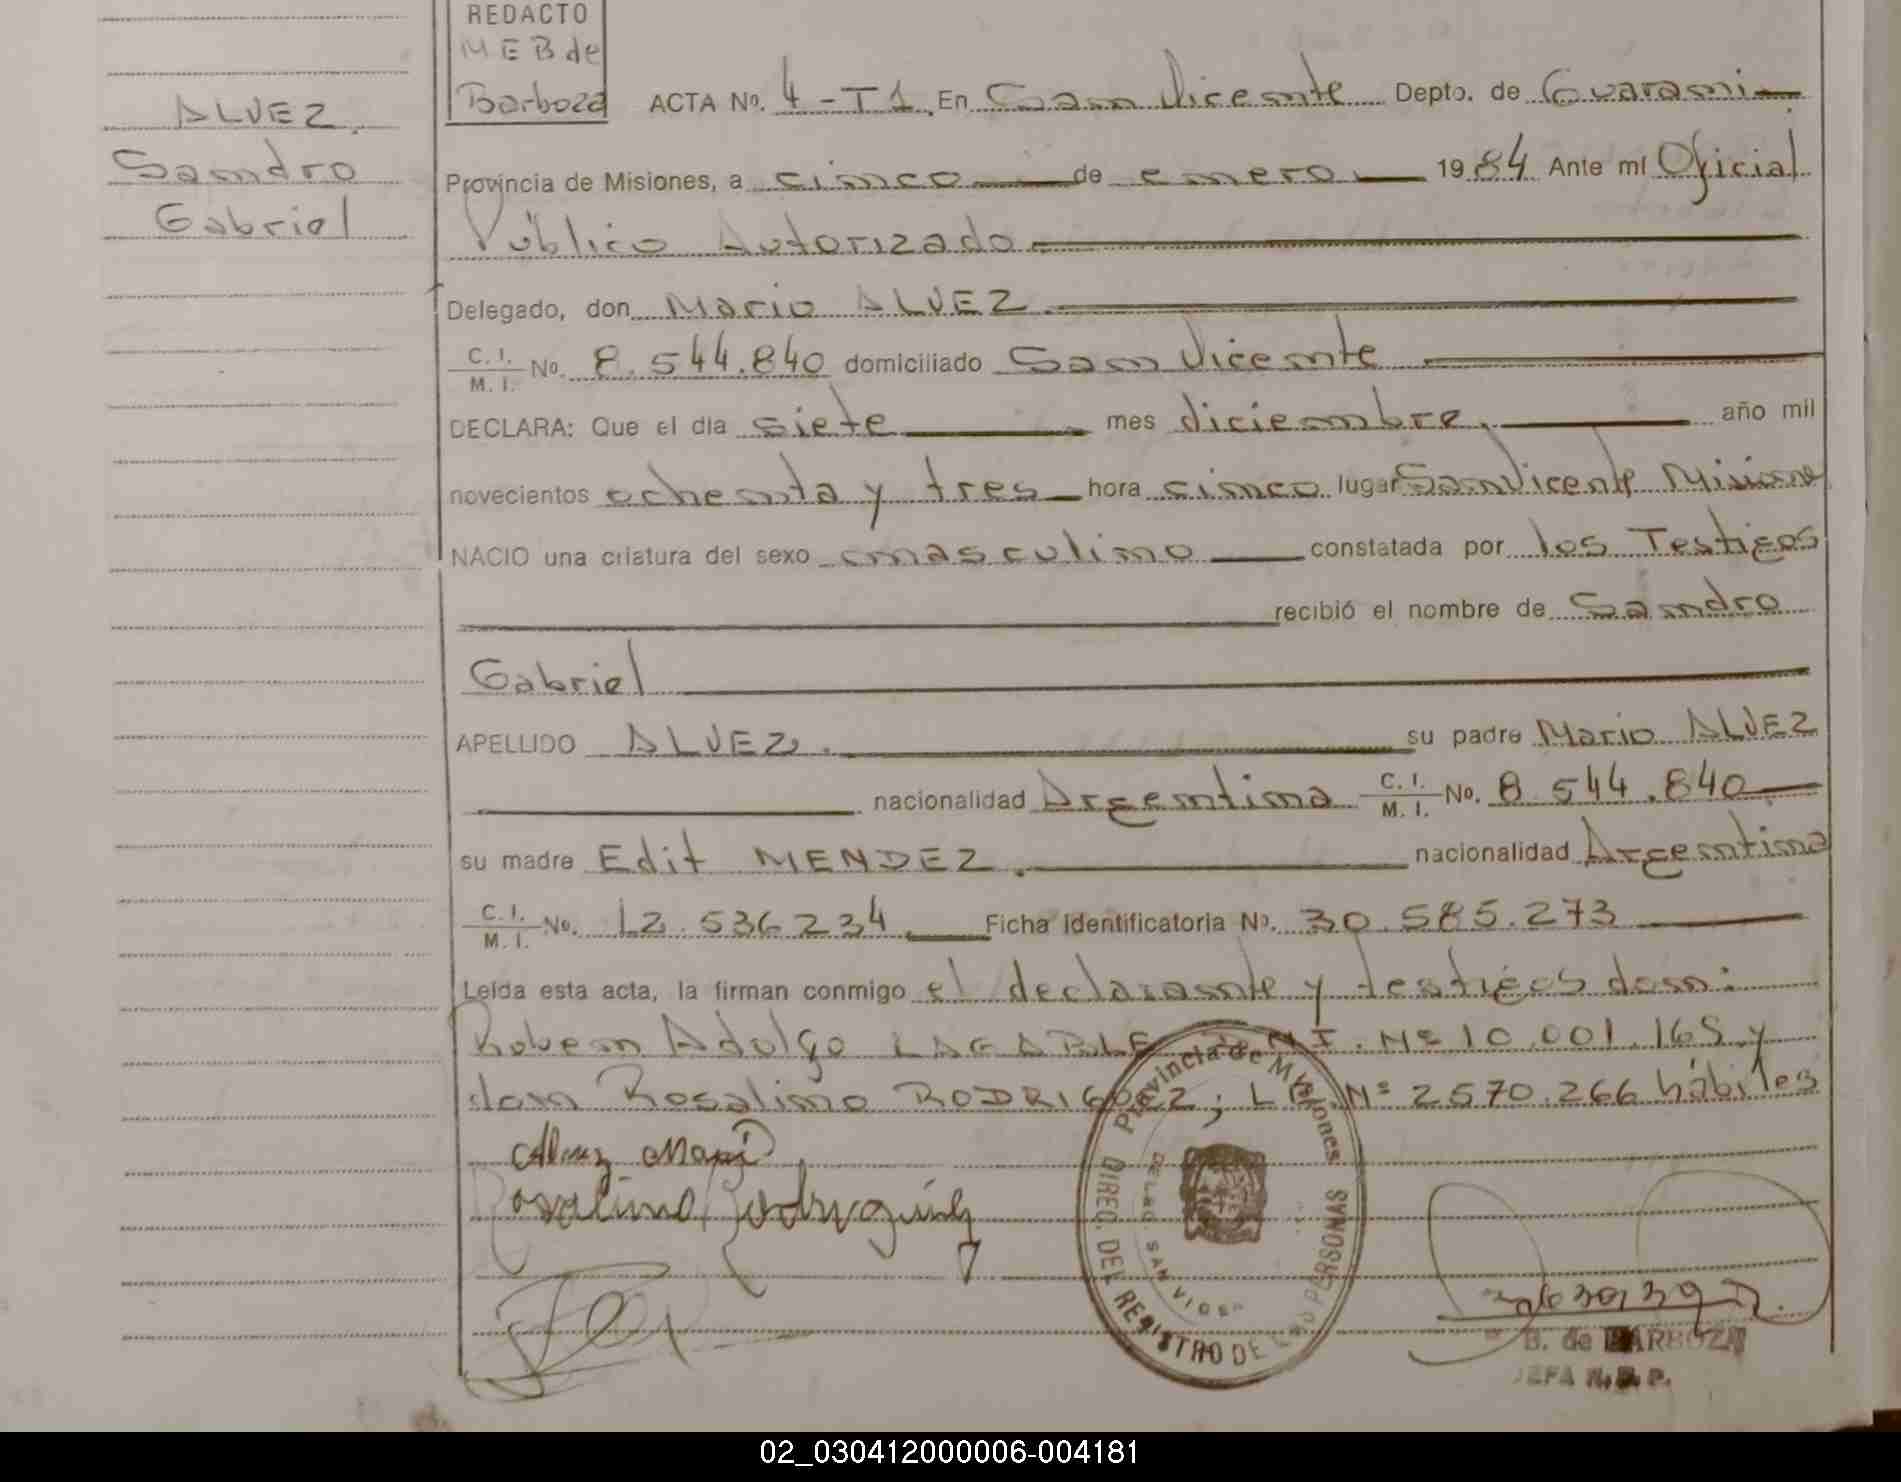 REDACTO
M E B de
Barboza
ALVEZ.
Sandro
Gabriel
ACTA No. 4 - T1. En San Vicente Depto. de Guarani
Provincia de Misiones, a cinco de enero 1984 Ante mí Oficial
Público Autorizado
Delegado, don Mario ALVEZ.
C. I. / M. I. No. 8.544.840 domiciliado San Vicente
DECLARA: Que el día siete mes diciembre. año mil
novecientos ochenta y tres hora cinco lugar San Vicente Misione
NACIO una criatura del sexo masculino constatada por los Testigos
recibió el nombre de Sandro
Gabriel
APELLIDO ALVEZ. su padre Mario ALVEZ
nacionalidad Argentina C. I. / M. I. No. 8.544.840
su madre Edit MENDEZ. nacionalidad Argentina
C. I. / M. I. No. 12.536.234. Ficha identificatoria No. 30.585.273
Leída esta acta, la firman conmigo el declarante y testigos don:
Ruben Adolfo D.N.I. Nº 10.001.165 y
don Rosalino RODRIGUEZ; L.E. Nº 2570.266 hábiles
Alvez Mario
Rosalino Rodriguez
Provincia de Misiones
DIREC. DEL REGISTRO DE LAS PERSONAS
DELEG. SAN VICEN
B. de BARBOZA
JEFA R.P.P.
02_030412000006-004181